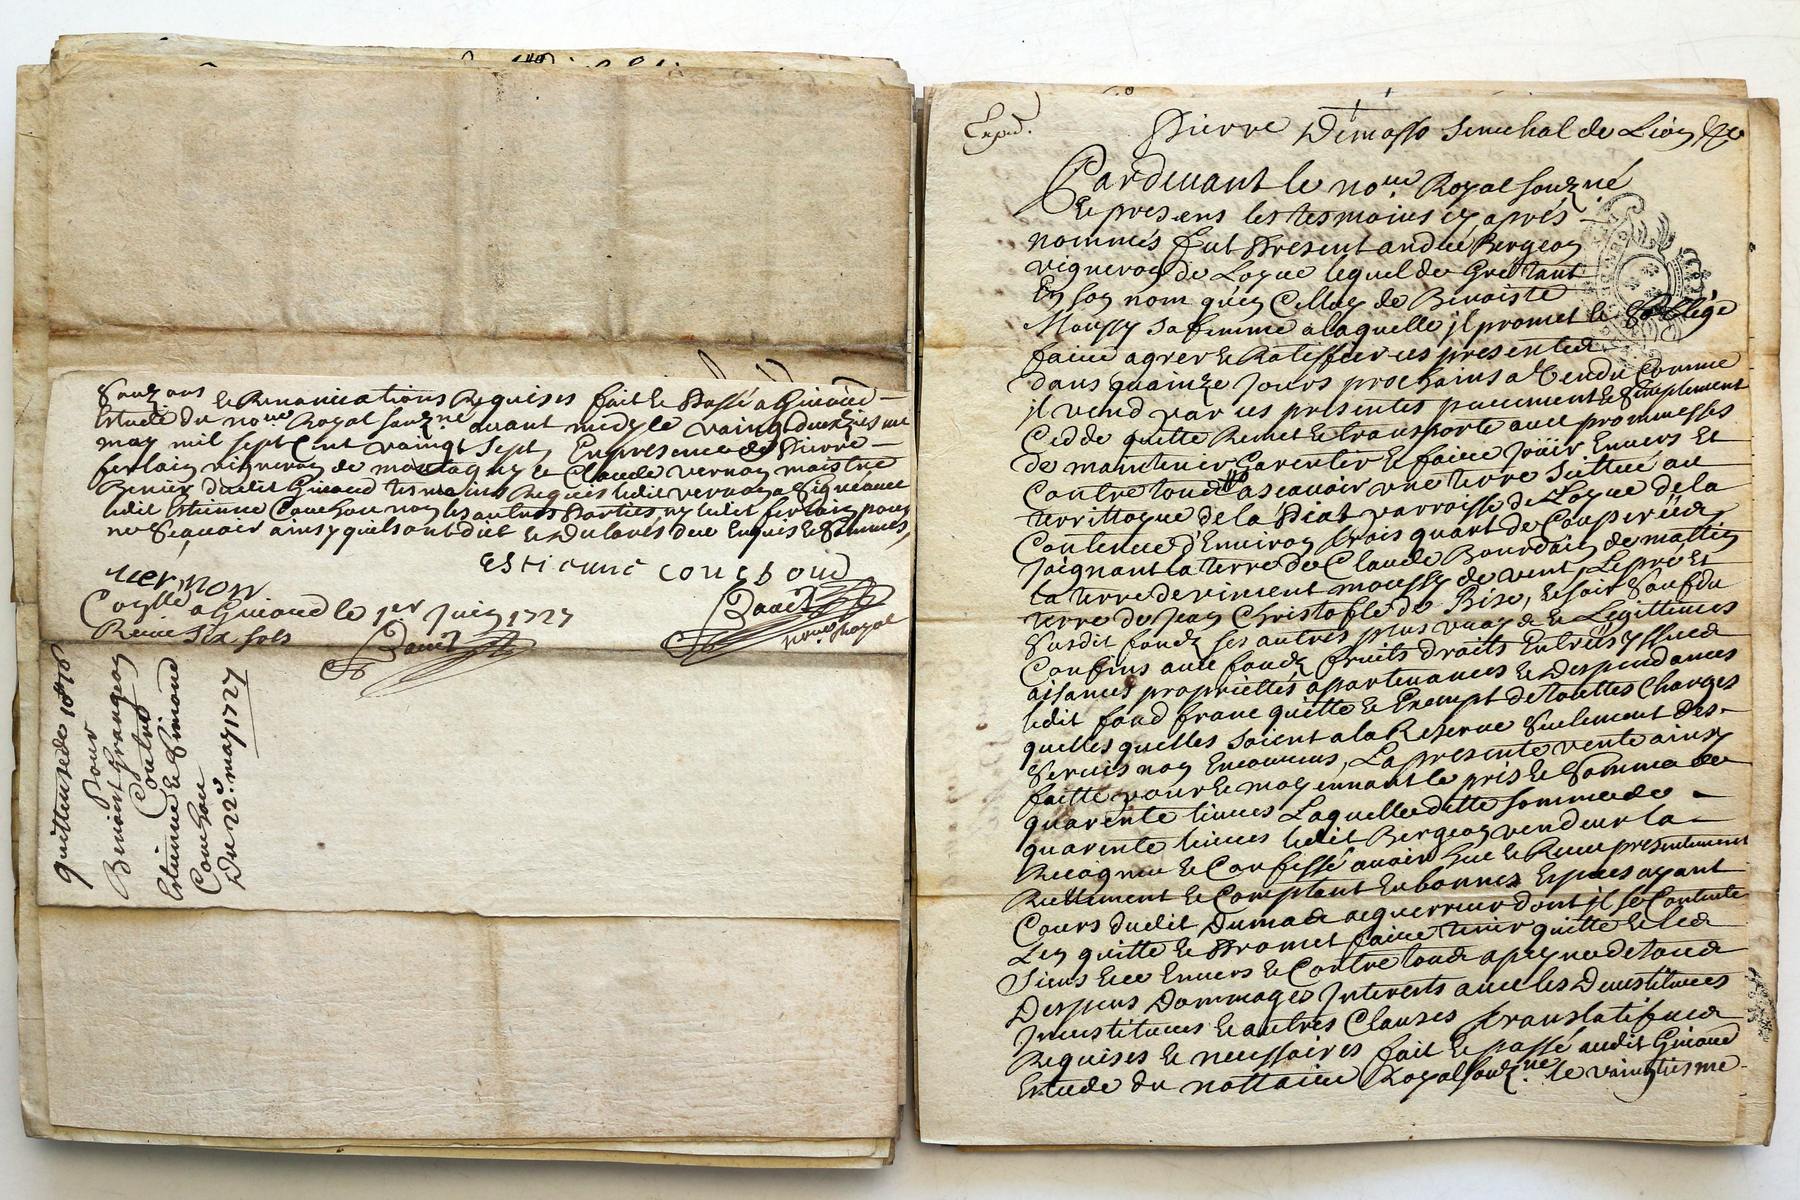 soubz ons & Renonciations Requises fait & Passé a Giuord
Estude du no.re Royal soubz.né auant midy le vaingt deuxiesme
may mil sept Cent vaingt sept En presence de Pierre
ferlain vigneron de montagny & Claude vernon maistre
dudit Giuord tesmoins Requis ledit vernon a signé auec
ledit Estienne Couchou non les autres Parties ny ledit ferlain pour
ne sçauoir ainsy quils ont dit & de ce Enquis & sommes
uernon
estienne couchoud
Coñllé a Giuord le 1er Juin 1727
Reçu six sols
no.re Royal
quittance de
Pour
Benoist Grangeon
Contre
Estienne & Simond
Couchou
Du 22.e may 1727
Exped.
Pierre Demasso Senechal de Lion &c
Pardeuant le no.re Royal soubz.né
& presens les tesmoins cy aprés
nommés fut Present andré Bergeon
vigneron de Loyre lequel de Gré tant
En son nom qu'en Celluy de Benoiste
Moussy sa femme a laquelle il promet
faire agreer & Ratiffier ces presentes
dans quainze Jours prochains a Vendu Comme
il vend par ces presentes purement & simplement
Cedde quitte Remet & transporte auec promesses
de maintenir Garentir & faire Jouir Enuers Et
Contre tous a sçauoir une terre scittué au
territtoyre de la Piat parroisse de Loyre de la
Contenue d'Enuiron trois quart de Couperüe
Joignant la terre de Claude Bourdain de mattin
la terre de vincent moussy de vent, Le pré Et
terre de Jean Christofle de Bise, & soir sauf du
susdit fondz ses autres plus vrays & Legittimes
Confins auec fondz fruits droits Entrées yssues
aisances propriettés apartenances & Despendances
ledit fond franc quitte & Exempt de touttes Charges
quelles quelles soient a la Reserue seulement des
seruis non Encourus, La presente vente ainsy
faitte pour & moyennant le pris & somme de
quarente liures Laquelle ditte somme de
quarente liures ledit Bergeon vendeur la
Recognu & Confessé auoir Eue & Receu presentement
Reellement & Comptant En bonnes Especes ayant
Cours dudit Dumas acquerreur dont il se Contente
Len quitte & Promet faire tenir quitte & les
siens Enuers & Contre tous a peyne de tous
Despens Dommages Interests auec les Deuestitures
Inuestitures & autres Clauses translatifues
Requises & necessaires fait & passé audit Giuord
Estude du nottaire Royal soubz.né le vaingtiesme